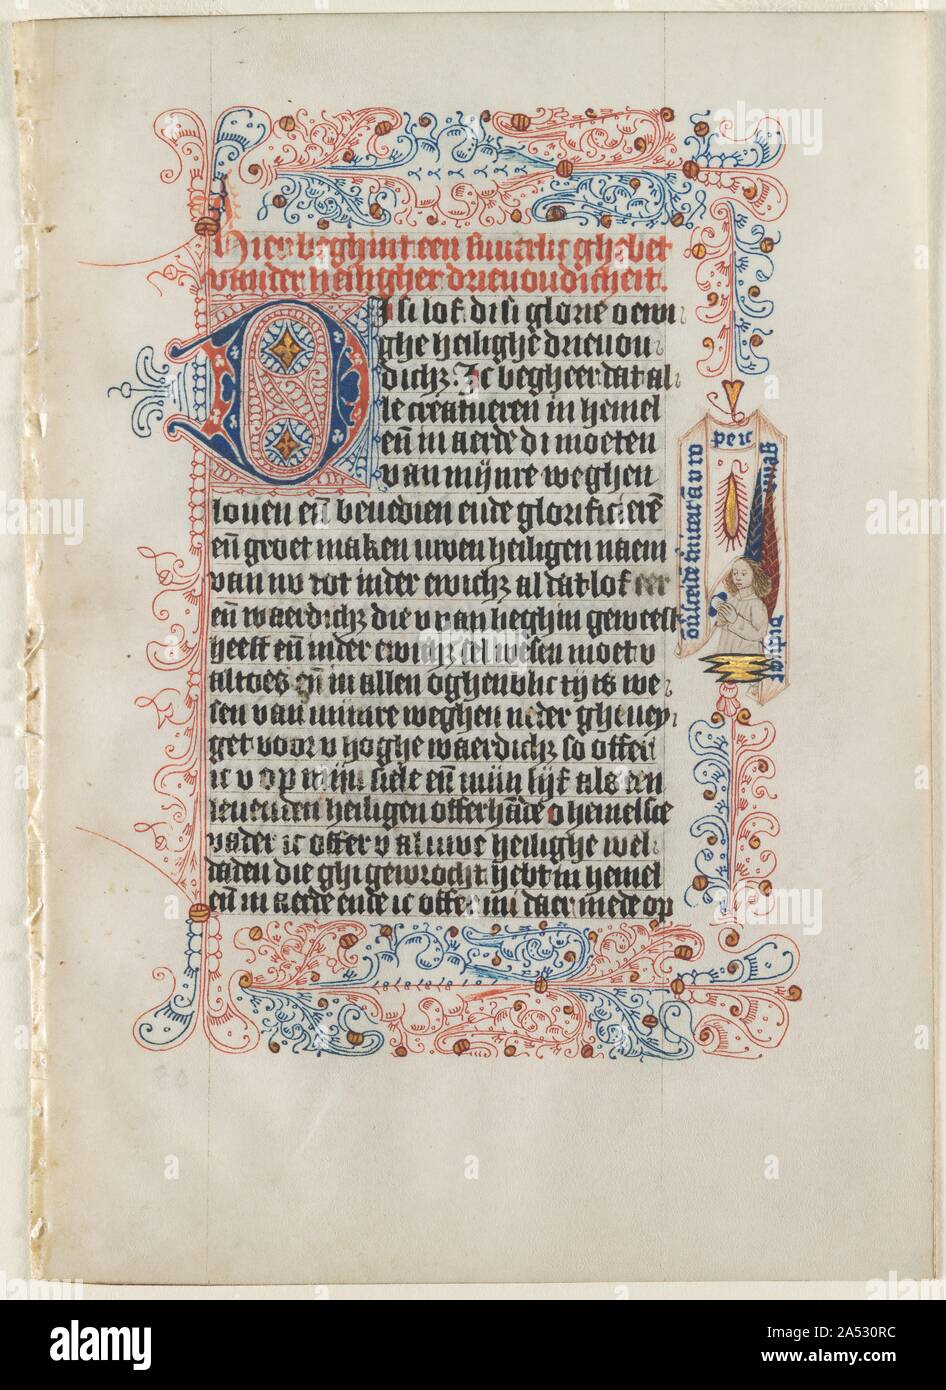 Hier beghint een suverlic ghebet
vander heiligher drievoudicheit.
Di si lof. di si glorie o ewi
ghe heilighe drievou
dichz. Ic begheer dat al
le creatueren in hemel
eñ in aerde di moeten
van mijnre weghen
loven eñ benedien ende glorificierē
eñ groet maken uwen heiligen naem
van nv tot inder ewichz al dat lof eer
eñ waerdichz die v van beghin geweest
heeft eñ inder ewichz sel wesen moet v
altoes eñ in allen oghenblic tijts we
sen van mijnre weghen
get voor v hoghe waerdichz so offer
ic v op mijn siele eñ mijn lijf als een
levenden heiligen offerhāde o hemelsce
vader ic offer v al uwe heilighe wel
daden die ghi gewrocht hebt in hemel
eñ in aerde ende ic offer mi daer mede op
per
alamy
Image ID: 2A530RC
www.alamy.com